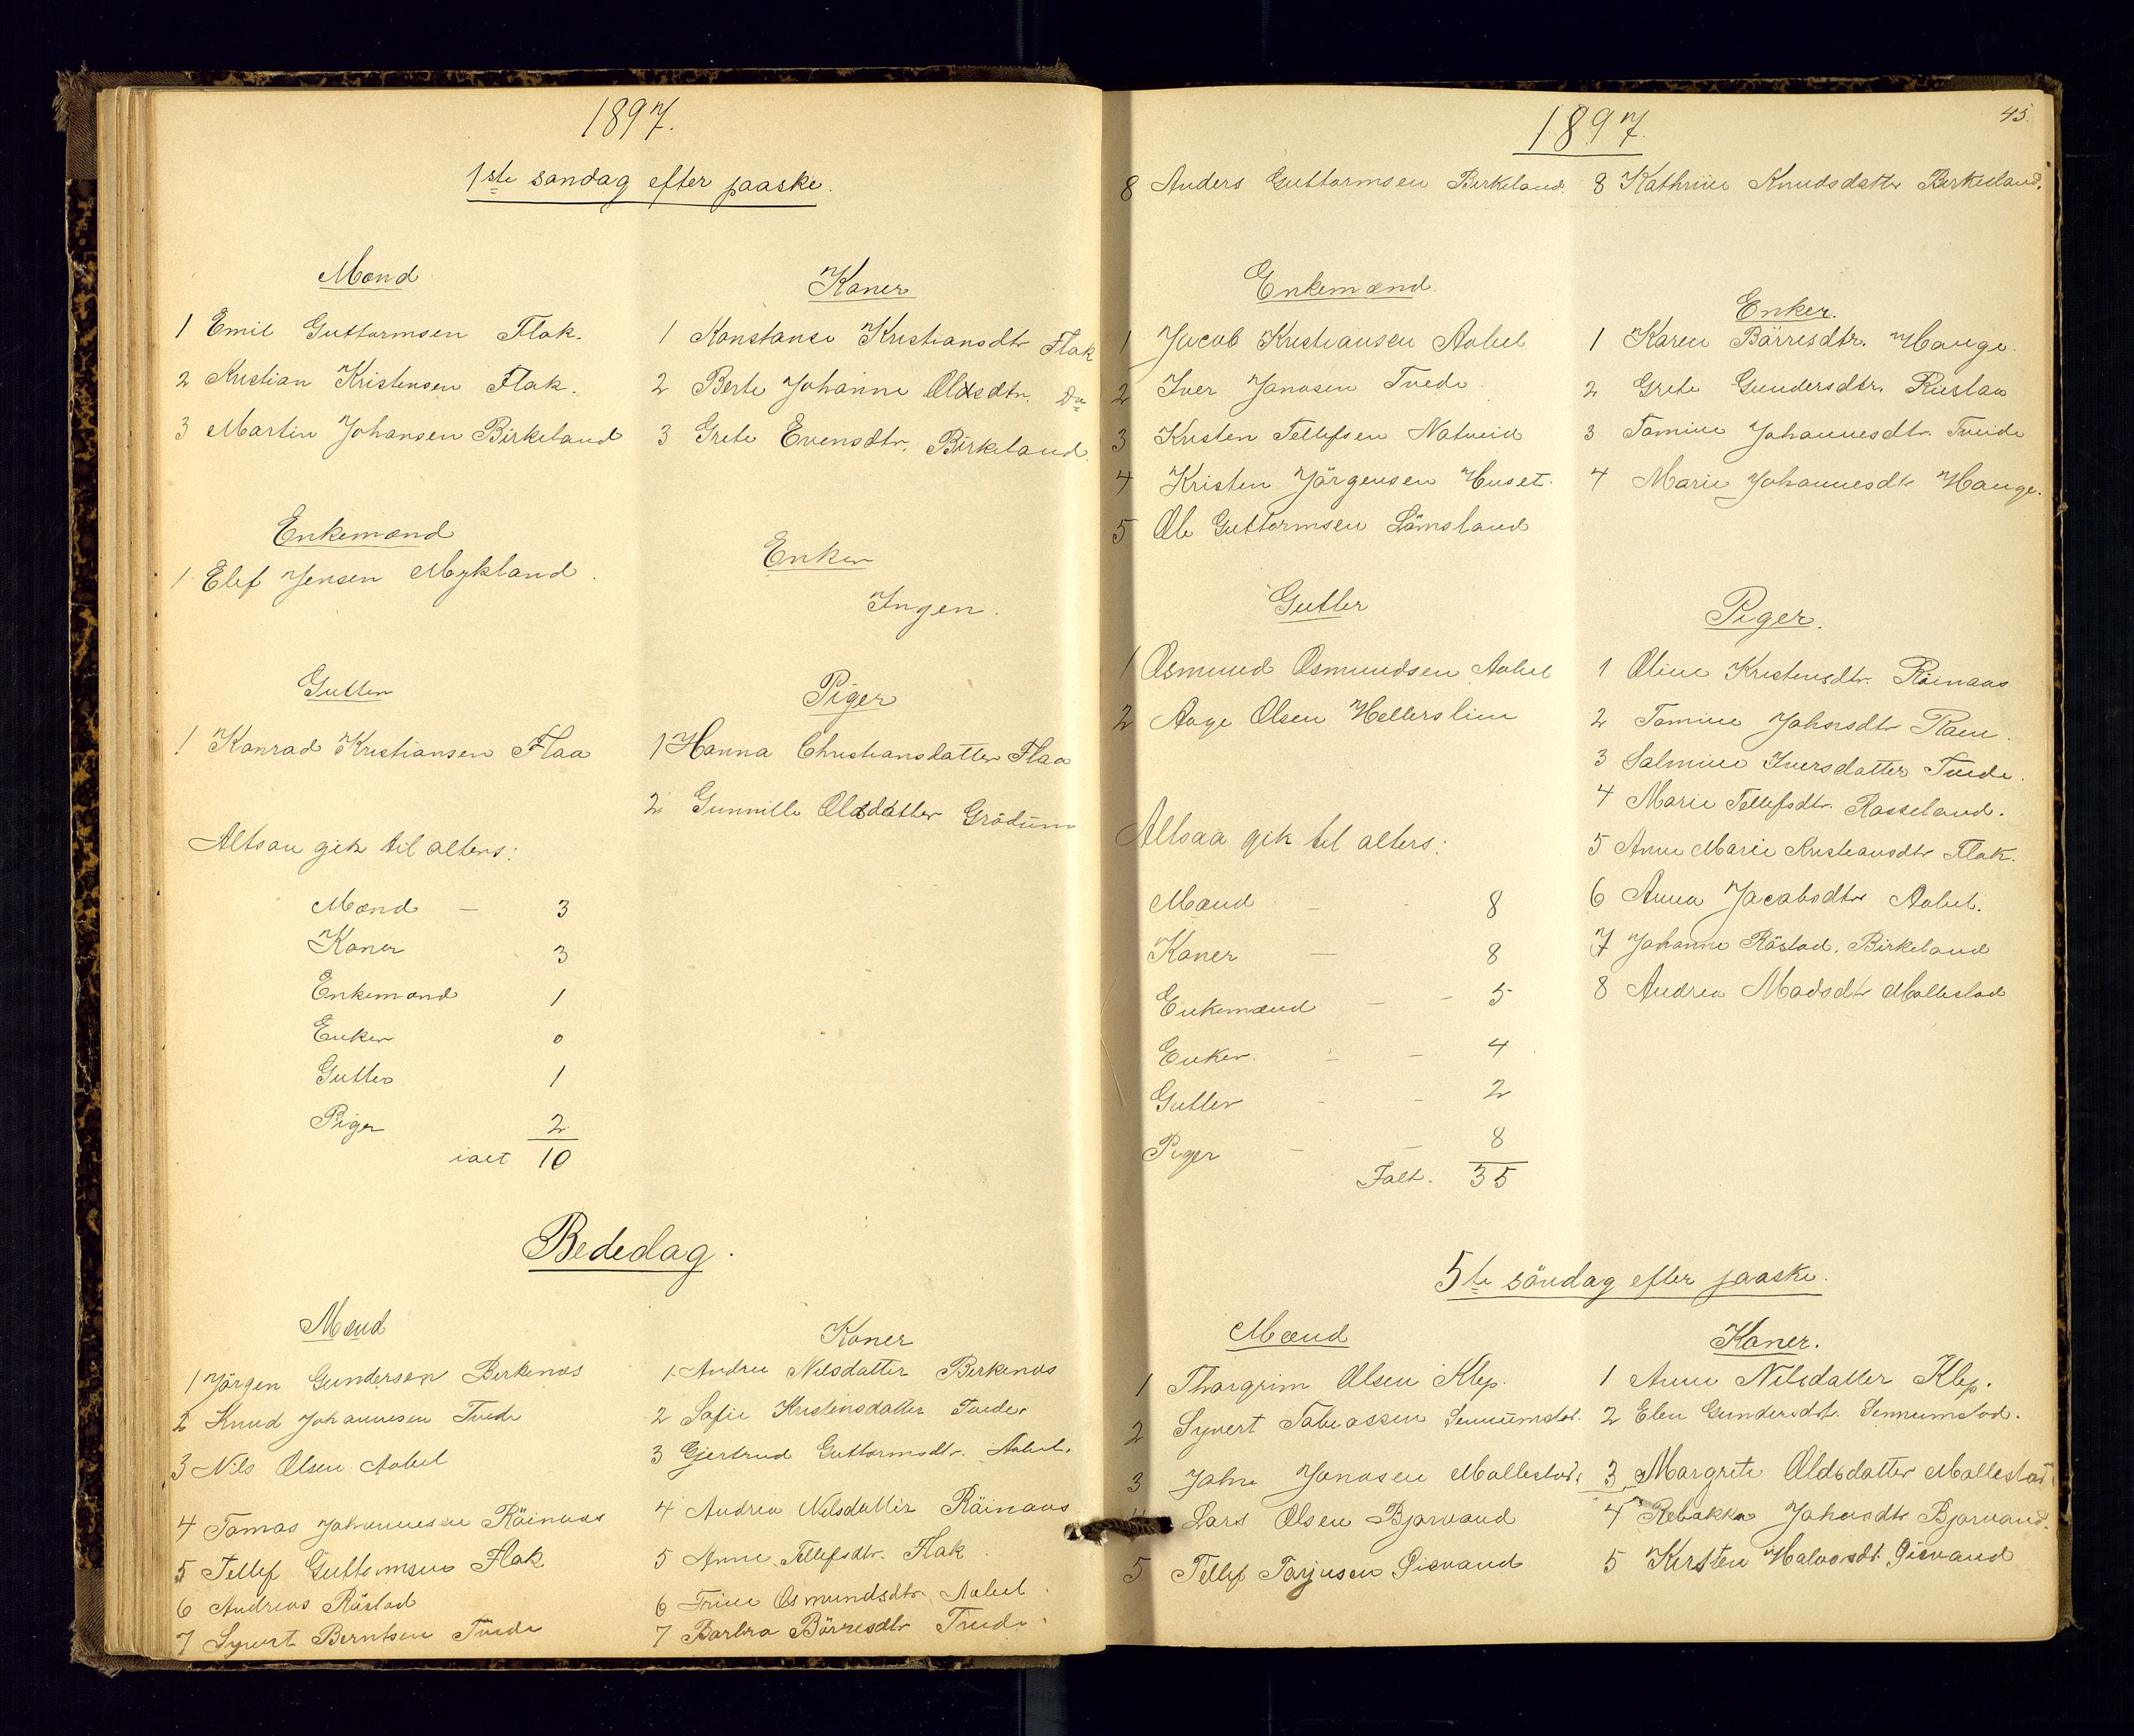 1897.
1ste søndag efter paaske.
Mænd
1 Emil Guttormsen Flak.
2 Kristian Kristensen Flak.
3 Martin Johansen Birkeland
Koner
1 Konstanse Kristiansdtr Flak
2 Berte Johanne Olesdtr. Do
3 Grete Evensdtr. Birkeland.
Enkemænd
1 Elef Jensen Mykland.
Enker
Ingen.
Gutter
1 Konrad Kristiansen Flaa
Piger
1 Hanna Christiansdatter Flaa
2 Gunnille Olsdatter Grödum
Altsaa gik til alters:
Mænd – 3
Koner 3
Enkemænd 1
Enker 0
Gutter 1
Piger 2
ialt 10
Bededag.
Mænd
1 Jörgen Gundersen Birkenæs
2 Knud Johannesen Tvede
3 Nils Olsen Aabel
4 Tomas Johannesen Röinaas
5 Tellef Guttormsen Flak
6 Andreas Röstad
7 Syvert Berntsen Tvede
Koner
1 Andrea Nilsdatter Birkenæs
2 Sofie Kristensdatter Tvede.
3 Gjertrud Guttormsdtr. Aabel.
4 Andrea Nilsdatter Röinaas
5 Anne Tellefsdtr. Flak
6 Trine Osmundsdtr Aabel.
7 Barbra Börresdtr Tvede
45.
1897.
8 Anders Guttormsen Birkeland.
8 Kathrine Knudsdatter Birkeland.
Enkemænd.
1 Jacob Kristiansen Aabel
2 Iver Jonasen Tvede.
3 Kristen Tellefsen Natveid
4 Kristen Jörgensen Huset.
5 Ole Guttormsen Lömsland
Enker.
1 Karen Börresdtr. Hauge.
2 Grete Gundersdtr. Rislaa
3 Tomine Johannesdtr. Tveide
4 Marie Johannesdtr Hauge.
Gutter
1 Osmund Osmundsen Aabel
2 Aage Olsen Hellerslien
Piger.
1 Oline Kristensdtr. Röinaas
2 Tomine Johnsdtr Raen.
3 Salmine Iversdatter Tvede.
4 Marie Tellefsdtr. Rosseland.
5 Anne Marie Kristiansdtr Flak.
6 Anna Jacobsdtr Aabel.
7 Johanne Röstad. Birkeland
8 Andrea Madsdtr Mollestad
Altsaa gik til alters:
Mænd – 8
Koner – 8
Enkemænd – – 5
Enker. – – 4
Gutter – – 2
Piger – – 8
Ialt. 35
5te söndag efter paaske.
Mænd
1 Thorgrim Olsen Klep.
2 Syvert Tobiassen Sennumstad.
3 John Jonasen Mollestad.
4 Lars Olsen Bjorvand
5 Tellef Tarjusen Oievand
Koner.
1 Anne Nilsdatter Klep.
2 Elen Gundersdtr. Sennumstad.
3 Margrete Olsdatter Mollestad
4 Rebekka Johnsdtr Bjorvand.
5 Kirsten Halvorsdt. Oievand